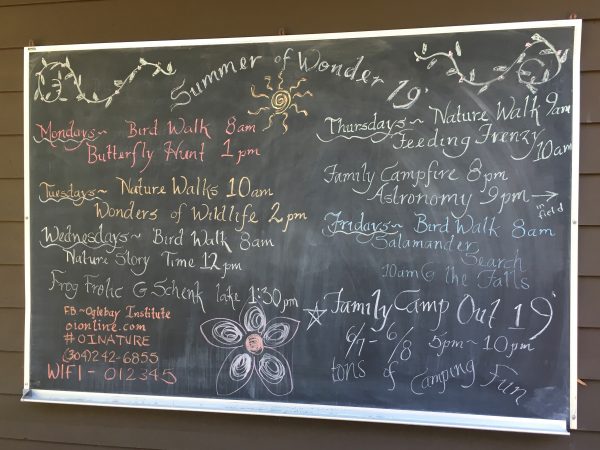 Summer of Wonder 19'
Mondays~ Bird Walk 8am
Butterfly Hunt 1pm
Tuesdays~ Nature Walks 10am
Wonders of Wildlife 2pm
Wednesdays~ Bird Walk 8am
Nature Story Time 12pm
Frog Frolic @ Schenk lake 1:30pm
FB~Oglebay Institute
oionline.com
#OINATURE
(304)242-6855
WIFI- 012345
Thursdays~ Nature Walk 9am
Feeding Frenzy 10am
Family Campfire 8pm
Astronomy 9pm → in field
Fridays~ Bird Walk 8am
Salamander
Search
10am @ the Falls
Family Camp Out 19'
6/7- 6/8 5pm~10pm
tons of Camping Fun